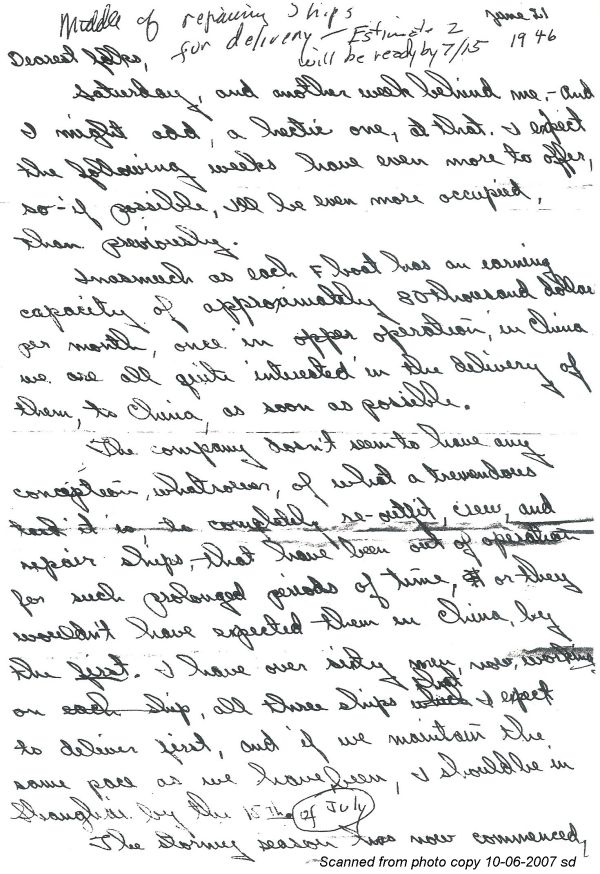 Middle of repairing Ships
for delivery - Estimate 2
will be ready by 7/15
June 21
1946
Dearest folks,
Saturday, and another week behind me, - and
I might add, a hectic one, at that. I expect
the following weeks have even more to offer,
so - if possible, I'll be even more occupied,
than previously.
Inasmuch as each F boat has an earning
capacity of approximately 80 thousand dollar
per month, once in opper operation, in China
we are all quite interested in the delivery of
them, to China, as soon as possible.
The company dosn't seem to have any
conception, whatsoever, of what a tremendous
task it is, to completely re-outfit, crew, and
repair ships, - that have been out of operation
for such prolonged periods of time, or they
wouldn't have expected them in China, by
the first. I have over sixty men, now, working
on each ship, all three ships which that I expect
to deliver first, and if we maintain the
same pace as we have been, I should be in
Shanghai by the 15th of July
The stormy season has now commenced,
Scanned from photo copy 10-06-2007 sd